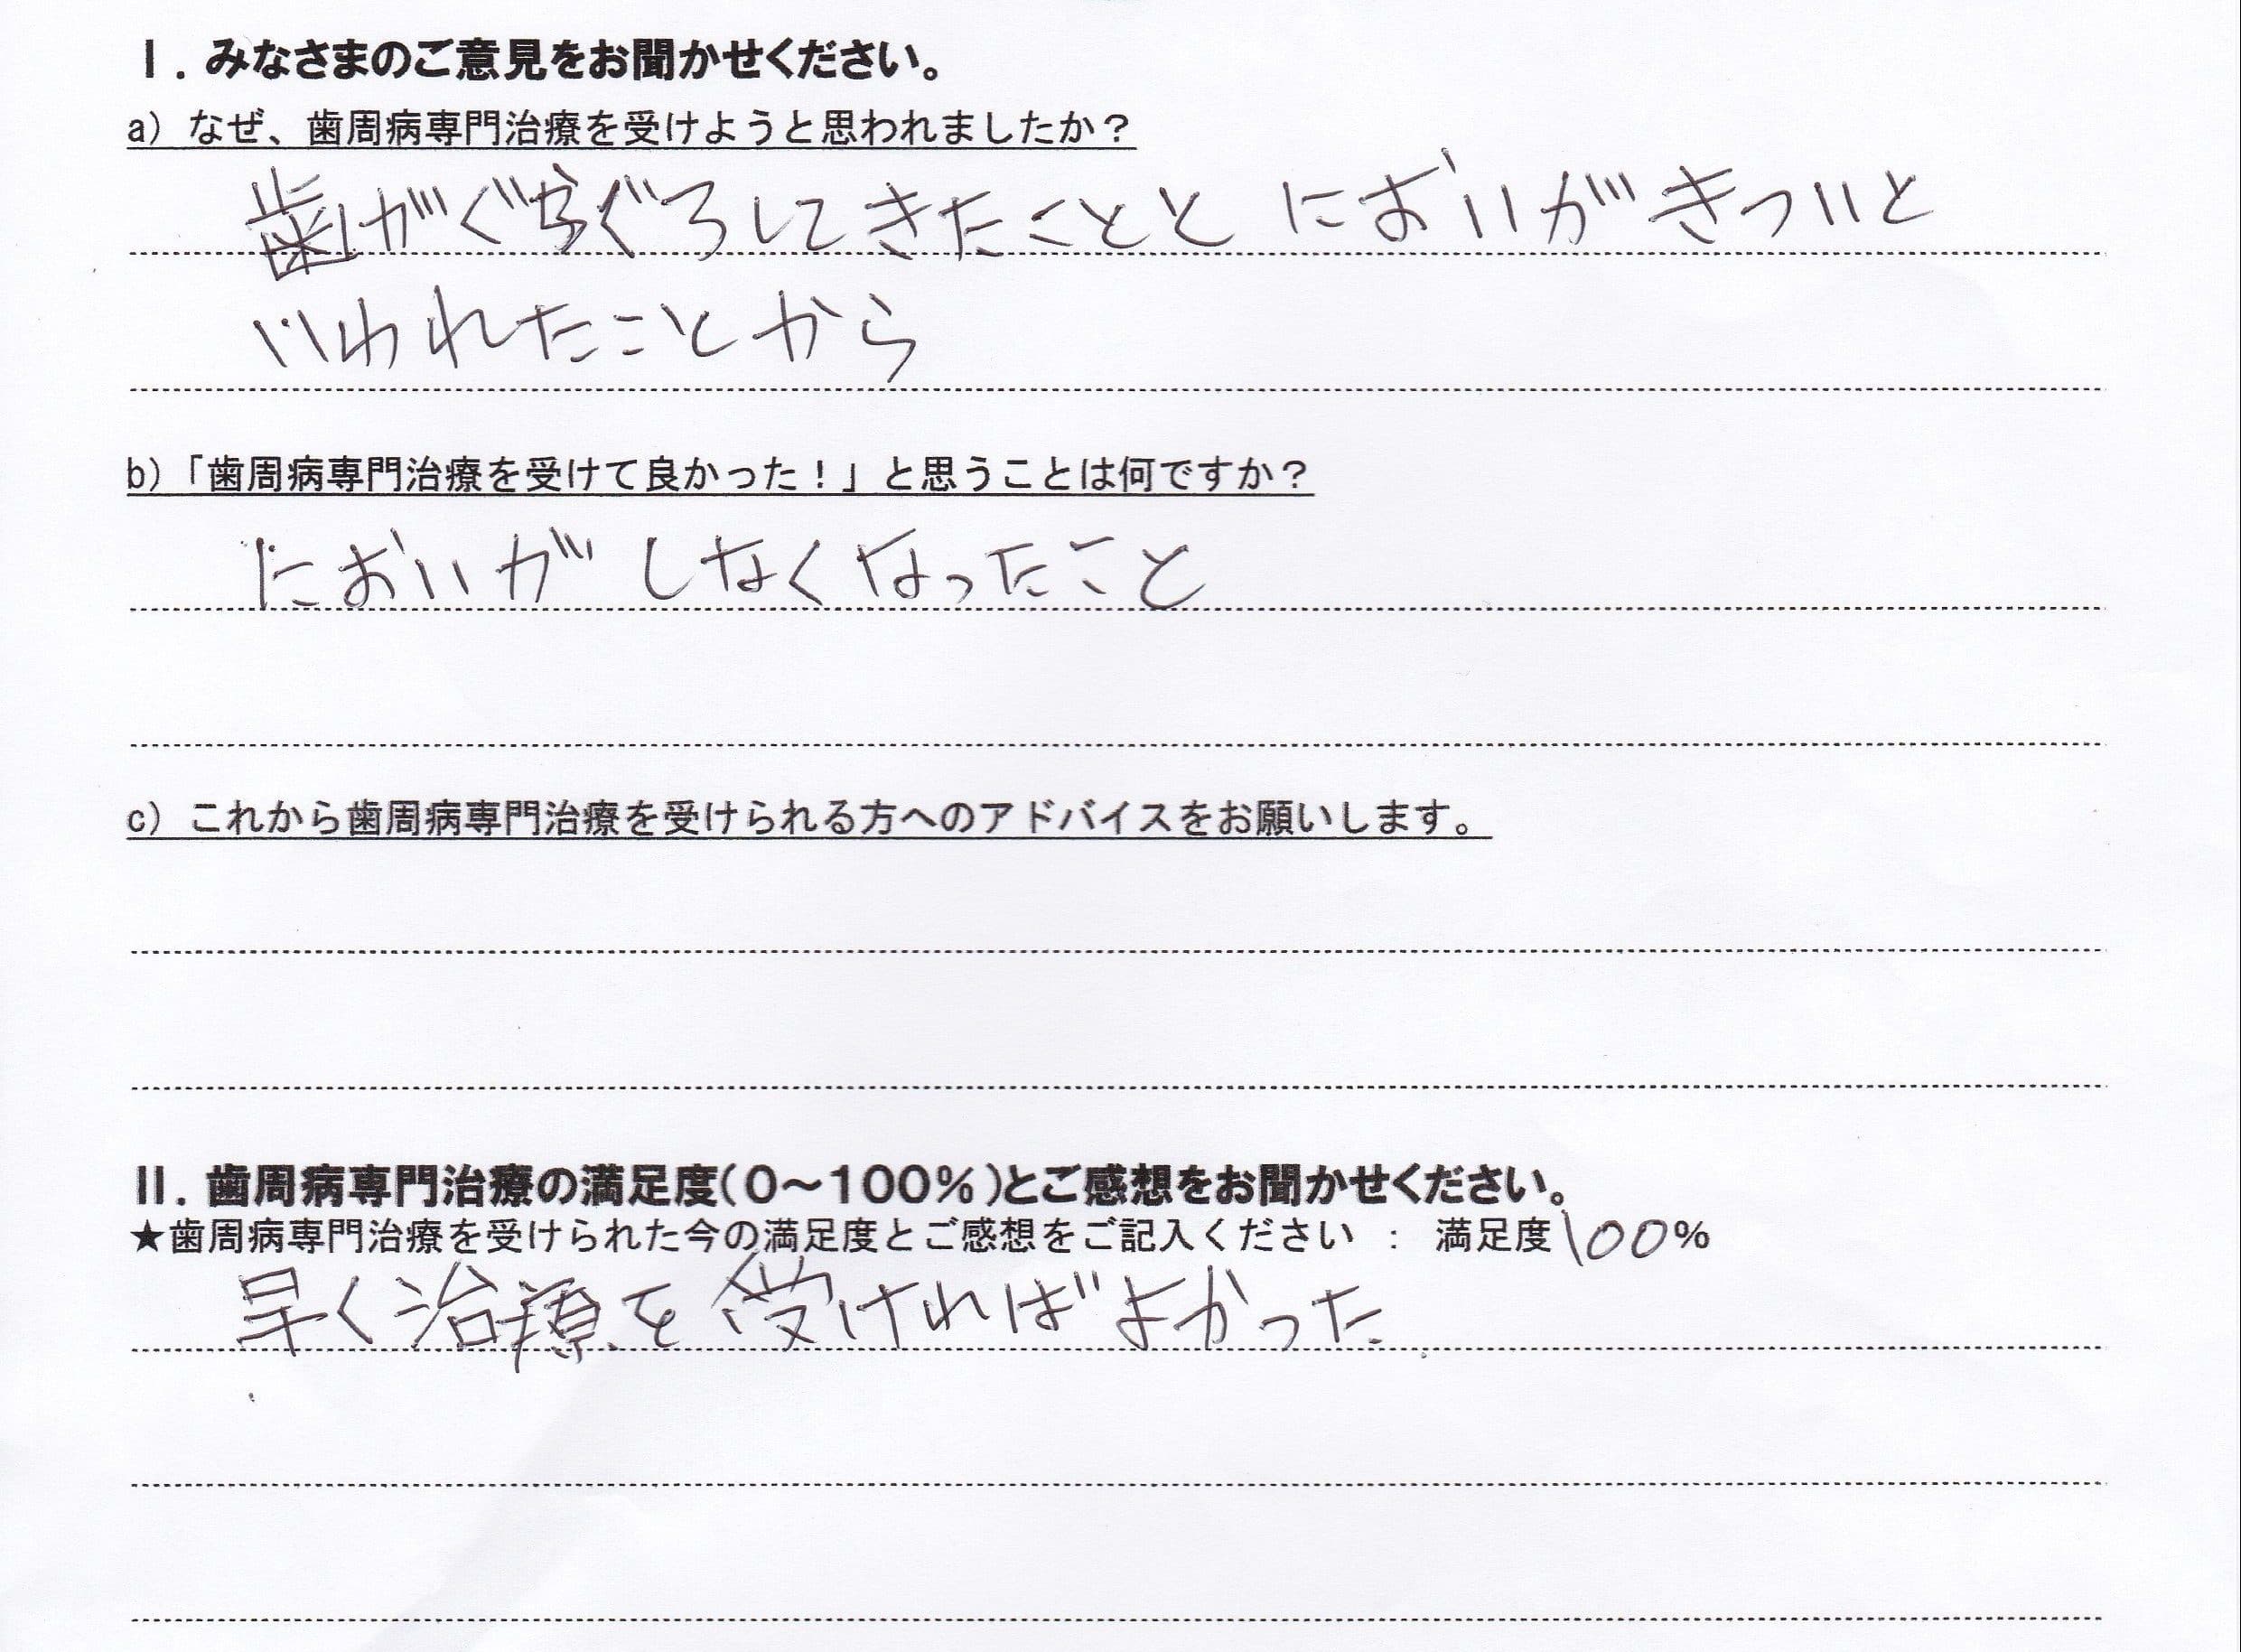 Ⅰ. みなさまのご意見をお聞かせください。
a) なぜ、歯周病専門治療を受けようと思われましたか？
歯がぐらぐらしてきたことと においがきついと
いわれたことから
b)「歯周病専門治療を受けて良かった！」と思うことは何ですか？
においがしなくなったこと
c) これから歯周病専門治療を受けられる方へのアドバイスをお願いします。
Ⅱ. 歯周病専門治療の満足度(0～100%)とご感想をお聞かせください。
★歯周病専門治療を受けられた今の満足度とご感想をご記入ください ： 満足度100%
早く治療を受ければよかった